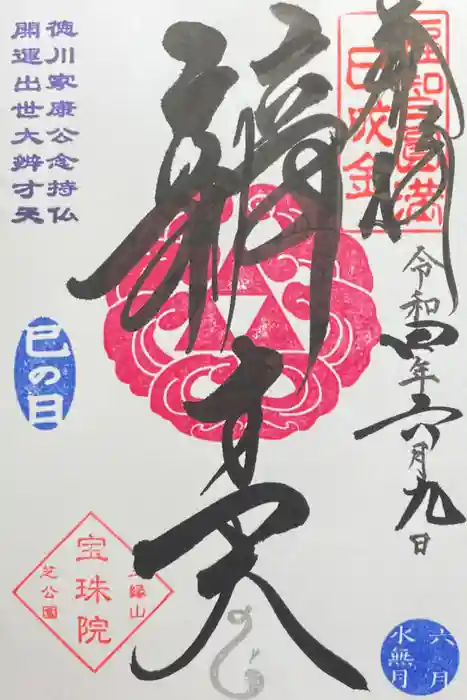 奉拝
令和四年六月九日
辨才天
徳川家康公念持仏
開運出世大辨才天
巳の日
三縁山
宝珠院
芝公園
六月
水無月